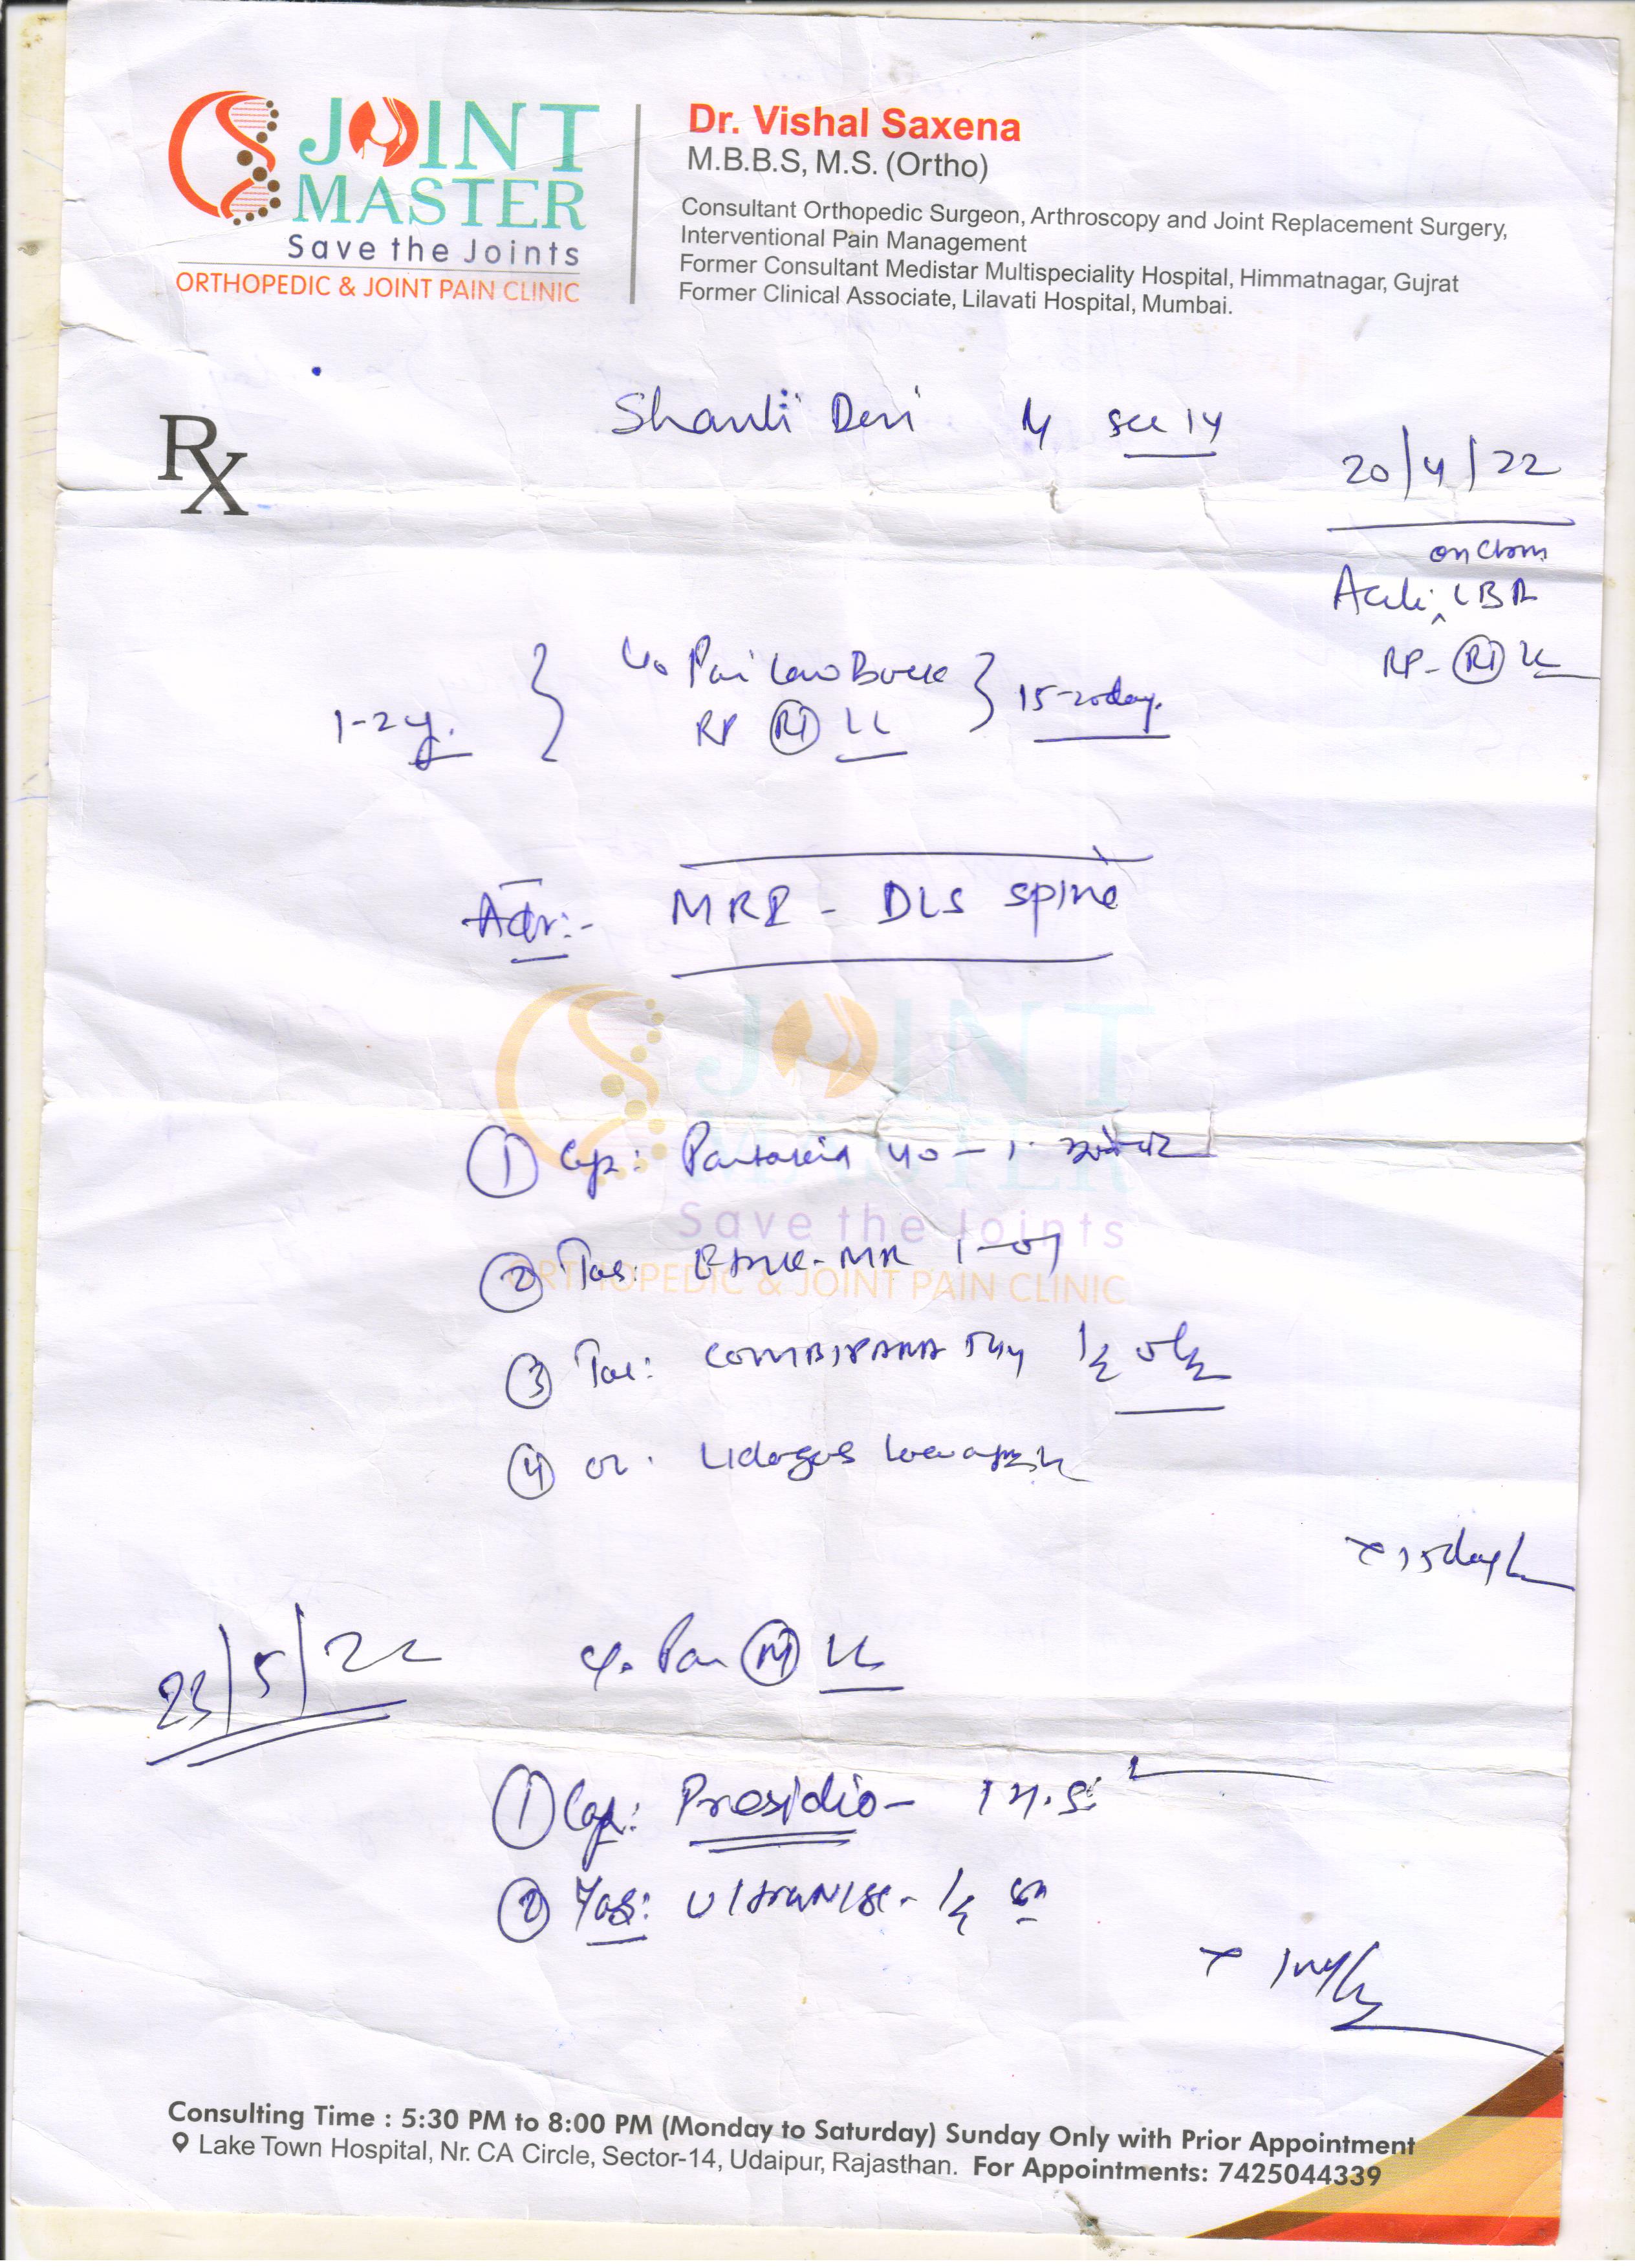 JOINT
MASTER
Save the Joints
ORTHOPEDIC & JOINT PAIN CLINIC
Dr. Vishal Saxena
M.B.B.S, M.S. (Ortho)
Consultant Orthopedic Surgeon, Arthroscopy and Joint Replacement Surgery,
Interventional Pain Management
Former Consultant Medistar Multispeciality Hospital, Himmatnagar, Gujrat
Former Clinical Associate, Lilavati Hospital, Mumbai.
Rx
Shanti Devi sec 14
20/4/22
on Chro
LBA
RP- Rt LL
Pai Low Back
1-2y. 15-20 day.
RP Rt LL
Adv:- MRI - DLS spine
JOINT
MASTER
1 Cap: 40 - 1
Save the Joints
2 Tab: -MR 1-01
ORTHOPEDIC & JOINT PAIN CLINIC
3 Tab: COMBIPARA 1/2 0 1/2
4
x 15 day
23/5/22 Rt LL
1 Cap: Presidio - 1 H.S.
2 Tab: 1/2
x
Consulting Time : 5:30 PM to 8:00 PM (Monday to Saturday) Sunday Only with Prior Appointment
Lake Town Hospital, Nr. CA Circle, Sector-14, Udaipur, Rajasthan. For Appointments: 7425044339